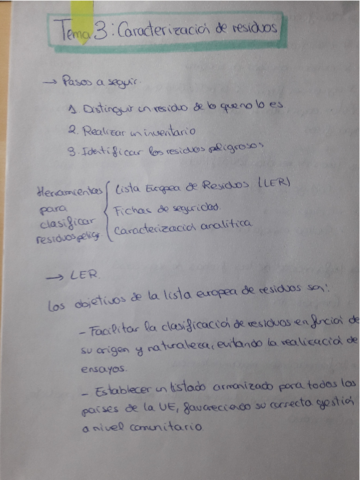 Tema 3: Caracterización de residuos
→ Pasos a seguir
1 Distinguir un residuo de lo que no lo es
2 Realizar un inventario
3 Identificar los residuos peligrosos
Herramientas para clasificar residuos pelig
Lista Europea de Residuos (LER)
Fichas de seguridad
Caracterización analítica
→ LER
Los objetivos de la lista europea de residuos son:
- Facilitar la clasificació de residuos en funció de
su origen y naturaleza, evitando la realizació de
ensayos.
- Establecer un listado armonizado para todos los
países de la UE, favoreciendo su correcta gestión
a nivel comunitario